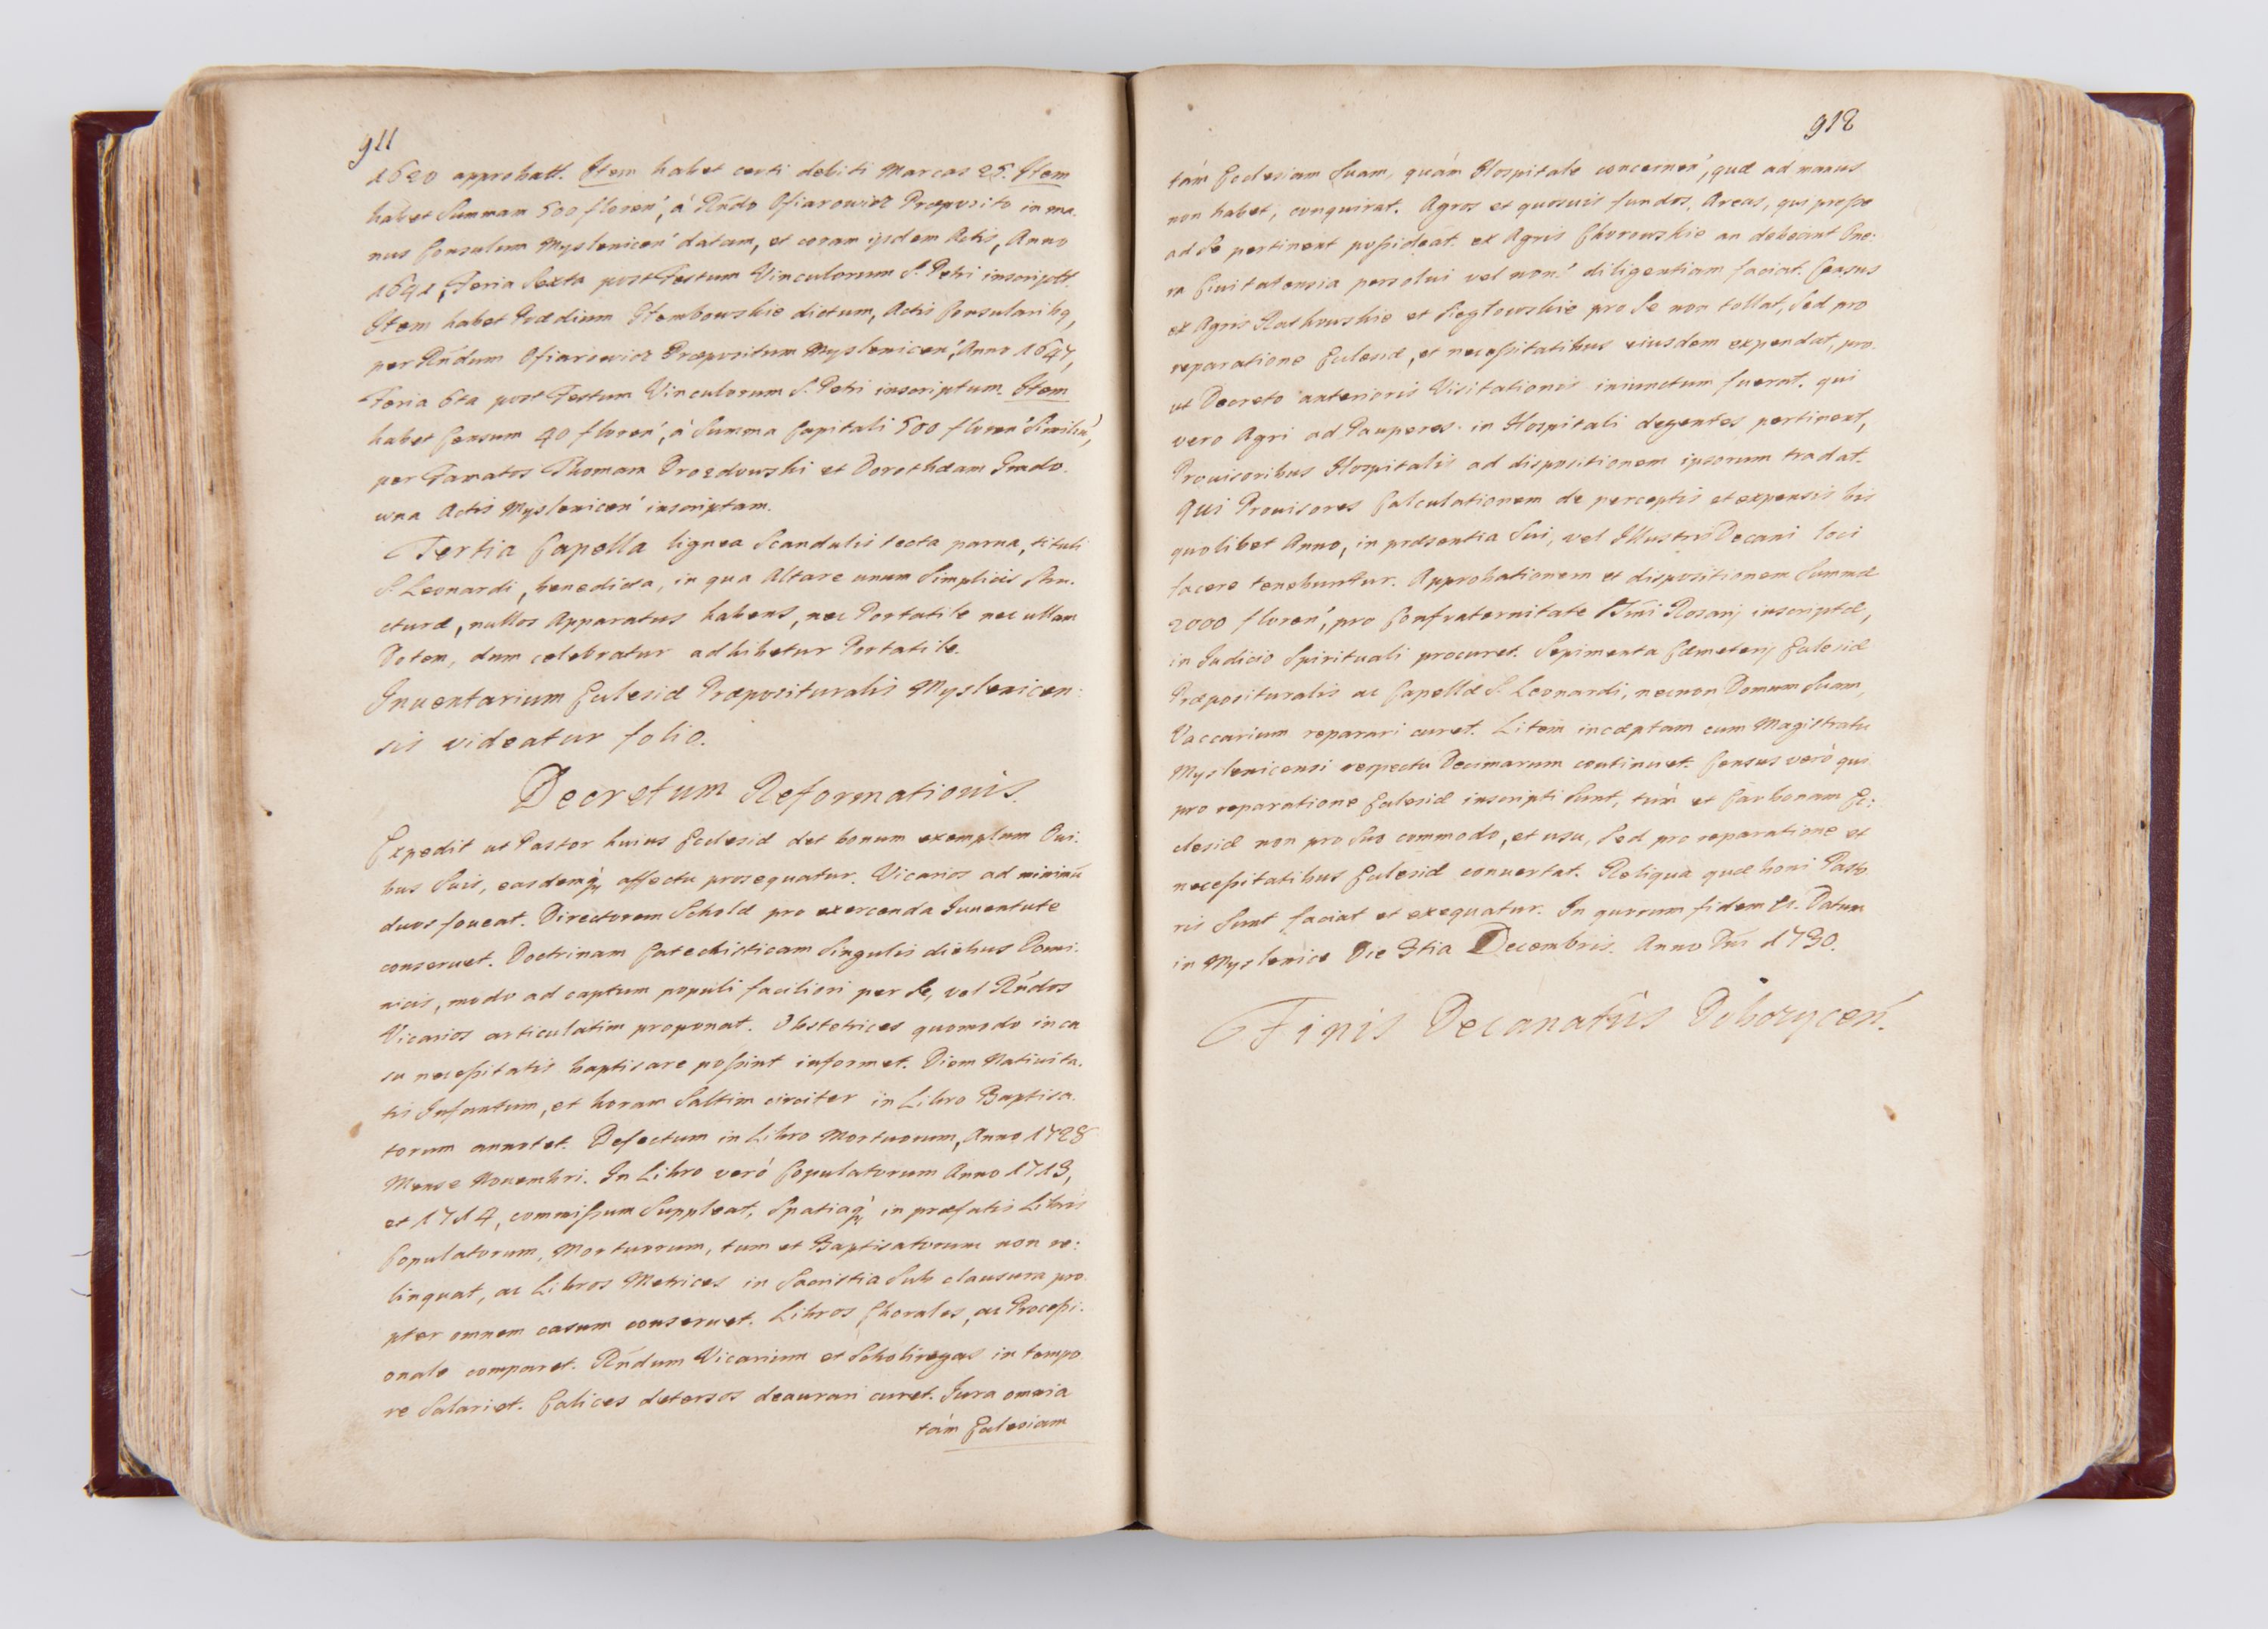 911
1620 approbatt. Item habet certi debiti Marcas 25. Item
habet Summam 500 floren', à Rńdo Ofiarowicz Præposito in ma-
nus Consulum Myslenicen' datam, et coram ijsdem Actis, Anno
1641, Feria Sexta post Festum Vinculorum S. Petri inscriptt.
Item habet Prædium Stembowskie dictum, Actis Consularibq,
per Rńdum Ofiarowicz Præpositum Myslenicen', Anno 1647,
Feria 6ta post Festum Vinculorum S. Petri inscriptum. Item
habet Censum 40 floren', à Summa Capitali 500 floren'
per Famatos Thomam Drozdowski et Dorotheam Grado-
wna Actis Myslenicen' inscriptam.
Tertia Capella lignea Scandulis tecta parva, tituli
S. Leonardi, benedicta, in qua Altare unum Simplicis Stru-
cturæ, nullos Apparatus habens, nec Portatile nec ullam
Dotem, dum celebratur adhibetur Portatile.
Inventarium Eclesiæ Præposituralis Myslenicen:
sis videatur folio.
Decretum Reformationis.
Expedit ut Pastor huius Ecclesiæ det bonum exemplum Oui:
bus Suis, easdemq; affectu prosequatur. Vicarios ad minimũ
duos foueat. Directorem Scholæ pro exercenda Iuuentute
conseruet. Doctrinam Catechisticam Singulis diebus Domi:
nicis, modo ad captum populi faciliori per Se, vel Rńdos
Vicarios articulatim proponat. Obstetrices quomodo in ca
su necessitatis baptisare possint informet. Diem Natiuita-
tis Infantum, et horam Saltim circiter in Libro Baptisa-
torum annotet. Defectum in Libro Mortuorum, Anno 1728
Mense Nouembri. In Libro verò Copulatorum Anno 1713,
et 1714, commissum Suppleat, Spatiaq; in præfatis Libris
Copulatorum, Mortuorum, tum et Baptisatorum non re:
linquat, ac Libros Metrices in Sacristia Sub clausura pro-
pter omnem casum conseruet. Libros Chorales, ac Processi-
onale comparet. Rńdum Vicarium et Scholiregas in tempo
re Salariet. Calices detersos deaurari curet. Iura omnia
tàm Eclesiam
912
tàm Ecclesiam Suam, quàm Hospitale concernen', quæ ad manus
non habet, conquirat. Agros et quosuis fundos, Areas, qui prope
ad Se pertinent possideat. ex Agris Chorowskie an debeant One:
ra Ciuitatensia persolui vel non? diligentiam faciat. Census
ex Agris Rathowskie et pro Se non tollat, Sed pro
reparatione Eclesiæ, et necessitatibus eiusdem expendat, pro-
ut Decreto anterioris Visitationis iniunctum fuerat. qui
vero Agri ad Pauperes in Hospitali degentes pertinent,
Prouisoribus Hospitalis ad dispositionem ipsorum tradat.
Qui Prouisores Calculationem de perceptis et expensis bis
quolibet Anno, in præsentia Sui, vel Illustris Decani loci
facere tenebuntur. Approbationem et dispositionem Summæ
2000 floren', pro Confraternitate SSmi Rosarij inscriptæ,
in Iudicio Spirituali procuret. Sepimenta Cæmeterij Eclesiæ
Præposituralis ac Capellæ S. Leonardi, necnon Domum Suam,
Vaccarium reparari curet. Litem incæptam cum Magistratu
Myslenicensi respectu Decimarum continuet. Census verò qui
pro reparatione Eclesiæ inscripti Sunt, tùm et Carbonam Ec:
clesiæ non pro Suo commodo, et usu, Sed pro reparatione et
necessitatibus Eclesiæ conuertat. Reliqua quæ boni Pasto
ris Sunt faciat et exequatur. In quorum fidem &. Datum
in Myslenice Die 3tia Decembris. Anno Dni 1730.
Finis Decanatûs Dobczycen'.